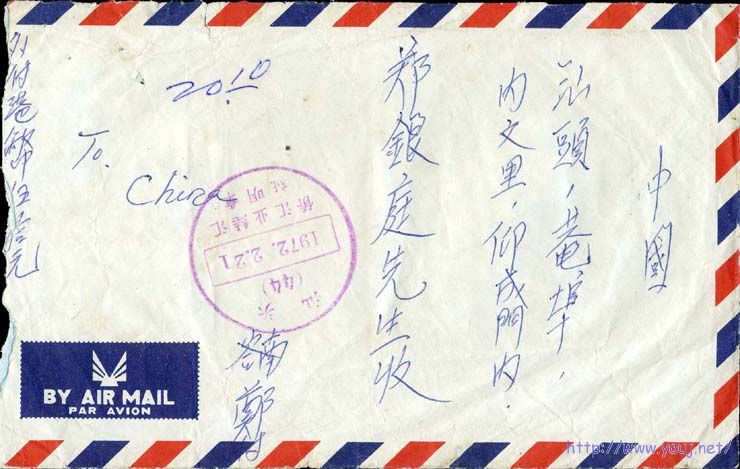 中國
汕頭，菴埠，
内文里，仰成門内．
郑銀庭先生收
鄭寸
外付港幣伍拾元
20.10
To.
China
侨汇业结汇
证明章
1972.2.21
(44)
汕头
BY AIR MAIL
PAR AVION
http://www.youj.net/